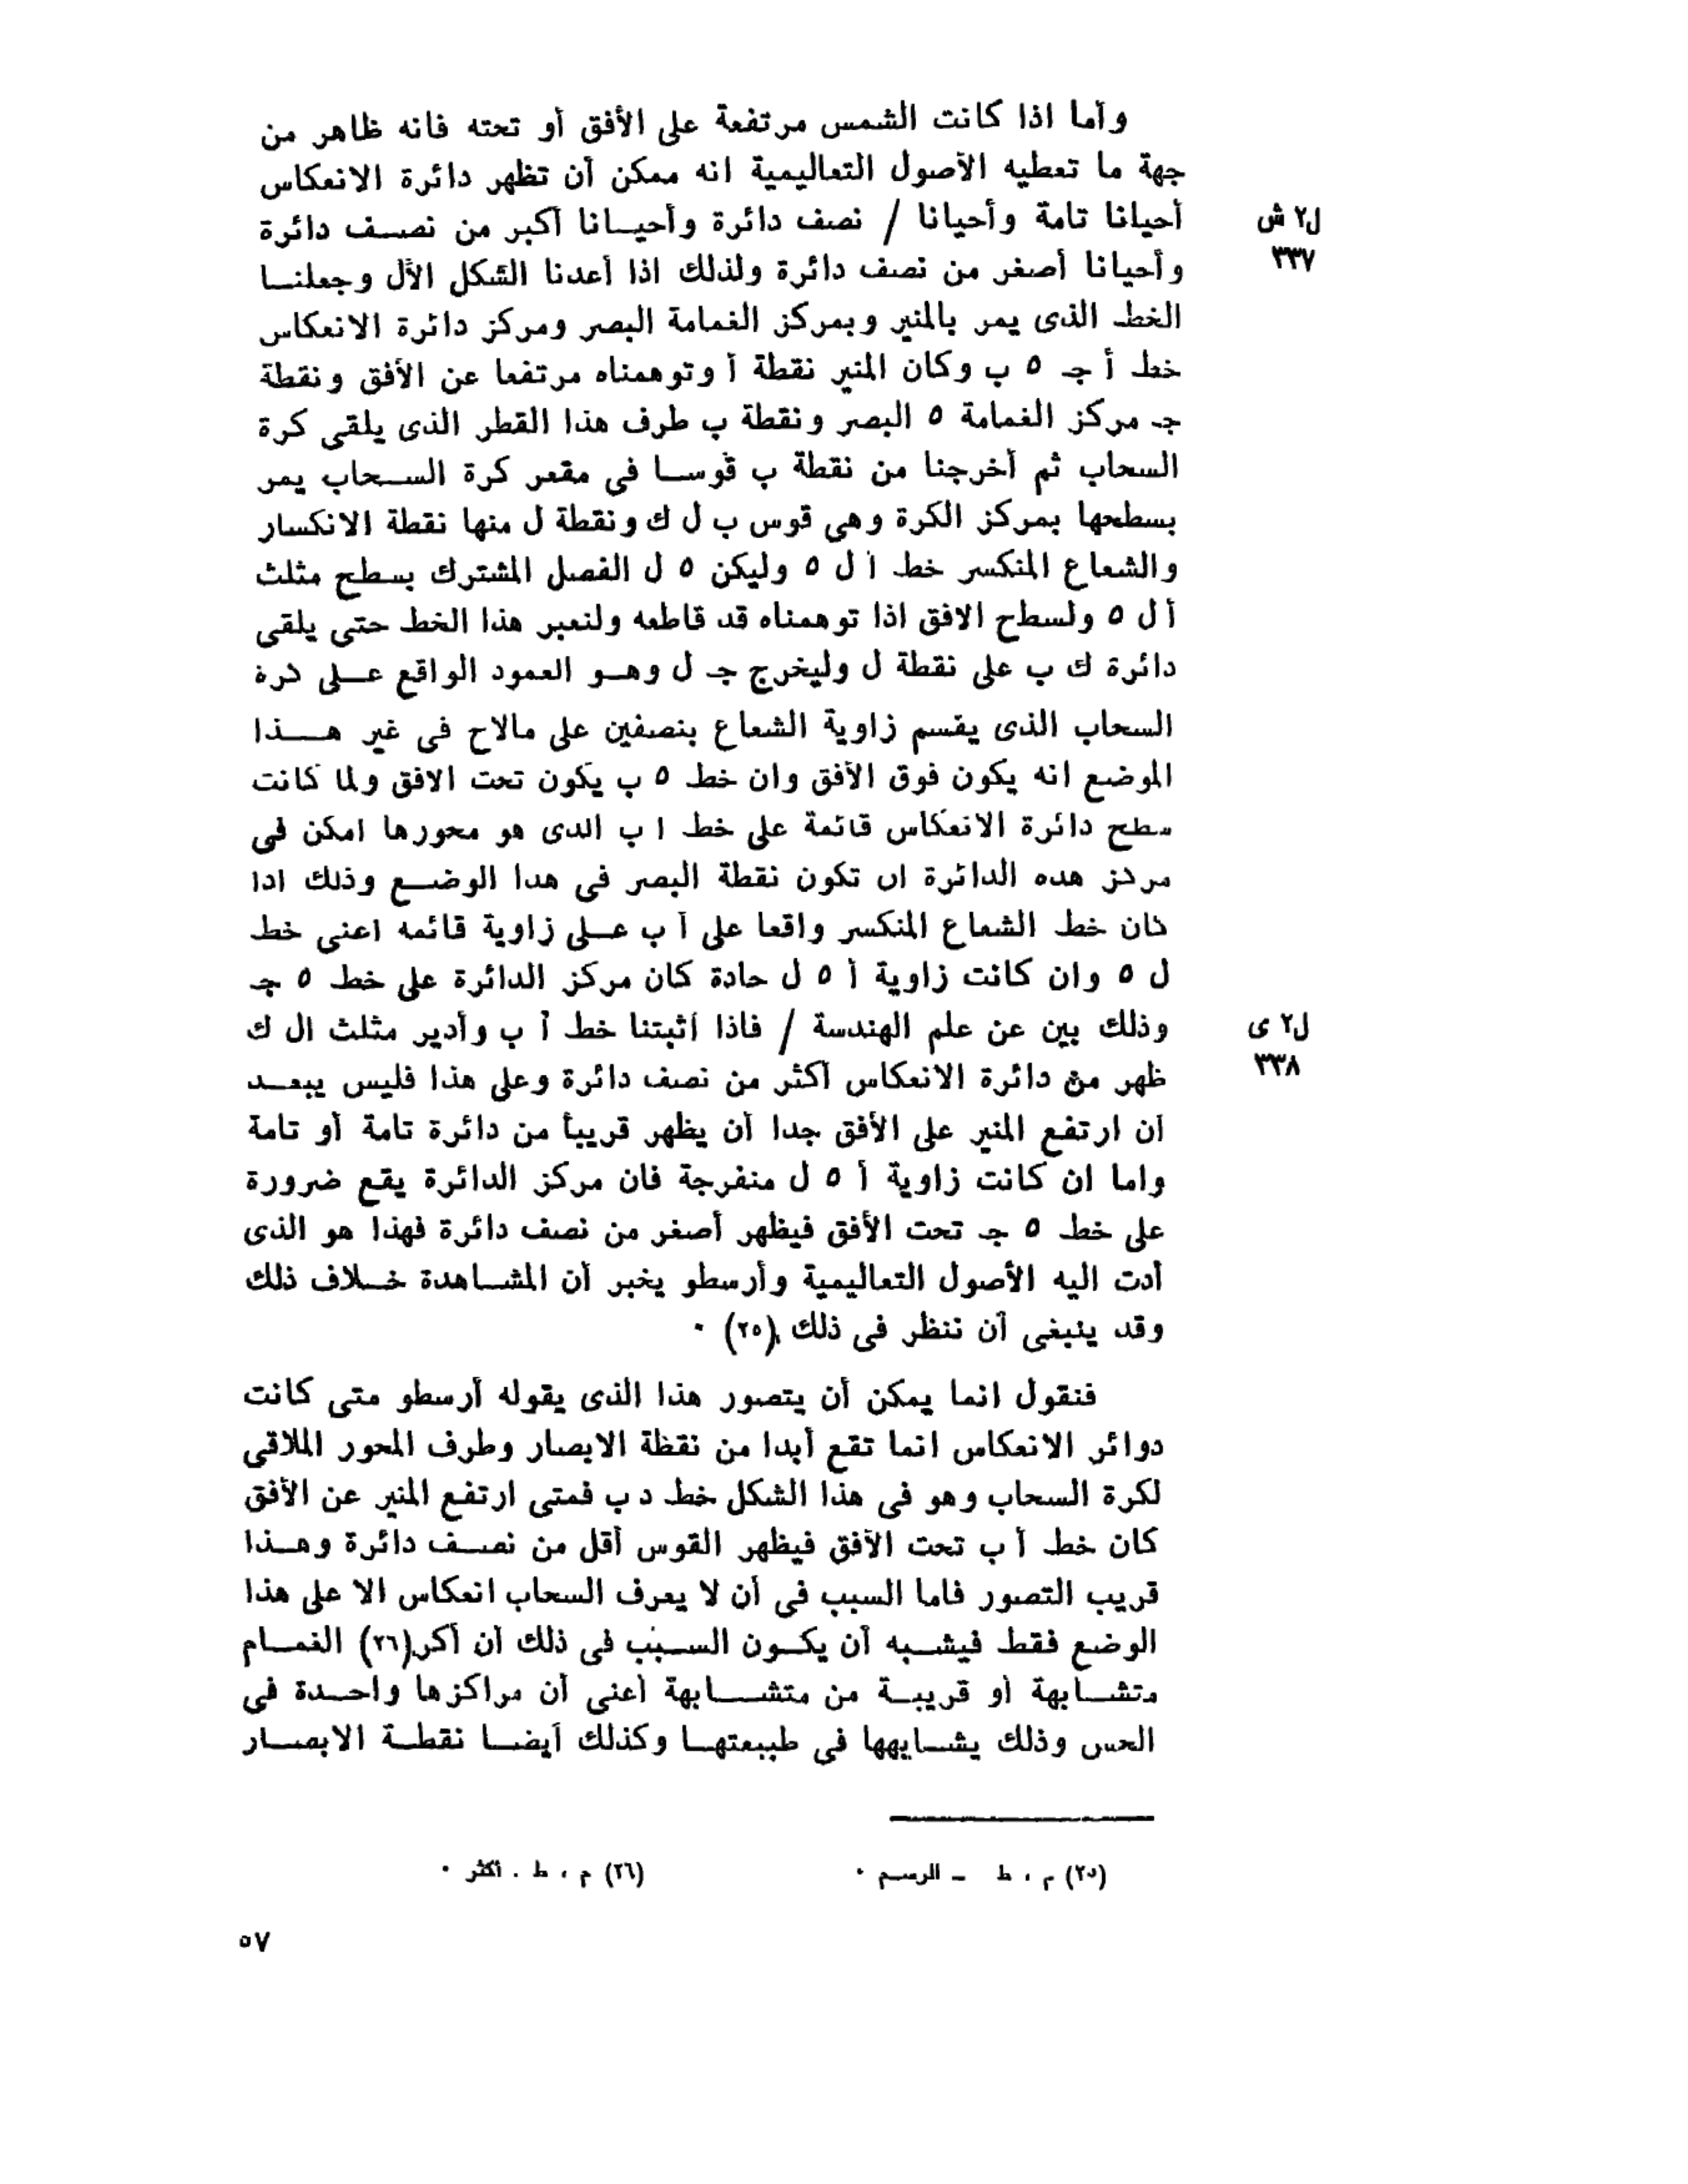 وأما اذا كانت الشمس مرتفعة على الأفق أو تحته فانه ظاهر من
جهة ما تعطيه الأصول التعاليمية انه ممكن أن تظهر دائرة الانعكاس
أحيانا تامة وأحيانا / نصف دائرة وأحيانا أكبر من نصف دائرة
ل٢ ش
٣٣٧
وأحيانا أصغر من نصف دائرة ولذلك اذا أعدنا الشكل الأل وجعلنا
الخط الذى يمر بالمنير وبمركز الغمامة البصر ومركز دائرة الانعكاس
خط أ جـ ٥ ب وكان المنير نقطة أ وتوهمناه مرتفعا عن الأفق ونقطة
جـ مركز الغمامة ٥ البصر ونقطة ب طرف هذا القطر الذى يلقى كرة
السحاب ثم أخرجنا من نقطة ب قوسا فى مقعر كرة السحاب يمر
بسطحها بمركز الكرة وهى قوس ب ل ك ونقطة ل منها نقطة الانكسار
والشعاع المنكسر خط أ ل ٥ وليكن ٥ ل الفصل المشترك بسطح مثلث
أ ل ٥ ولسطح الافق اذا توهمناه قد قاطعه ولنعبر هذا الخط حتى يلقى
دائرة ك ب على نقطة ل وليخرج جـ ل وهو العمود الواقع على كرة
السحاب الذى يقسم زاوية الشعاع بنصفين على مالاح فى غير هذا
الموضع انه يكون فوق الأفق وان خط ٥ ب يكون تحت الافق ولما كانت
سطح دائرة الانعكاس قائمة على خط ا ب الدى هو محورها امكن فى
مركز هده الدائرة ان تكون نقطة البصر فى هدا الوضع وذلك ادا
كان خط الشعاع المنكسر واقعا على أ ب على زاوية قائمه اعنى خط
ل ٥ وان كانت زاوية أ ٥ ل حادة كان مركز الدائرة على خط ٥ جـ
وذلك بين عن علم الهندسة / فاذا أثبتنا خط أ ب وأدير مثلث ال ك
ل٢ ى
٣٣٨
ظهر من دائرة الانعكاس أكثر من نصف دائرة وعلى هذا فليس يبعد
ان ارتفع المنير على الأفق جدا أن يظهر قريبأ من دائرة تامة أو تامة
واما ان كانت زاوية أ ٥ ل منفرجة فان مركز الدائرة يقع ضرورة
على خط ٥ جـ تحت الأفق فيظهر أصغر من نصف دائرة فهذا هو الذى
أدت اليه الأصول التعاليمية وأرسطو يخبر أن المشاهدة خلاف ذلك
وقد ينبغى أن ننظر فى ذلك (٢٥) ٠
فنقول انما يمكن أن يتصور هذا الذى يقوله أرسطو متى كانت
دوائر الانعكاس انما تقع أبدا من نقظة الابصار وطرف المحور الملاقى
لكرة السحاب وهو فى هذا الشكل خط د ب فمتى ارتفع المنير عن الأفق
كان خط أ ب تحت الأفق فيظهر القوس أقل من نصف دائرة وهذا
قريب التصور فاما السبب فى أن لا يعرف السحاب انعكاس الا على هذا
الوضع فقط فيشبه أن يكون السبب فى ذلك أن أكر(٢٦) الغمام
متشابهة أو قريبة من متشابهة أعنى أن مراكزها واحدة فى
الحس وذلك يشايهها فى طبيعتها وكذلك أيضا نقطة الابصار
(٢٥) م ، ط ـ الرسم ٠
(٢٦) م ، ط . أكثر ٠
٥٧